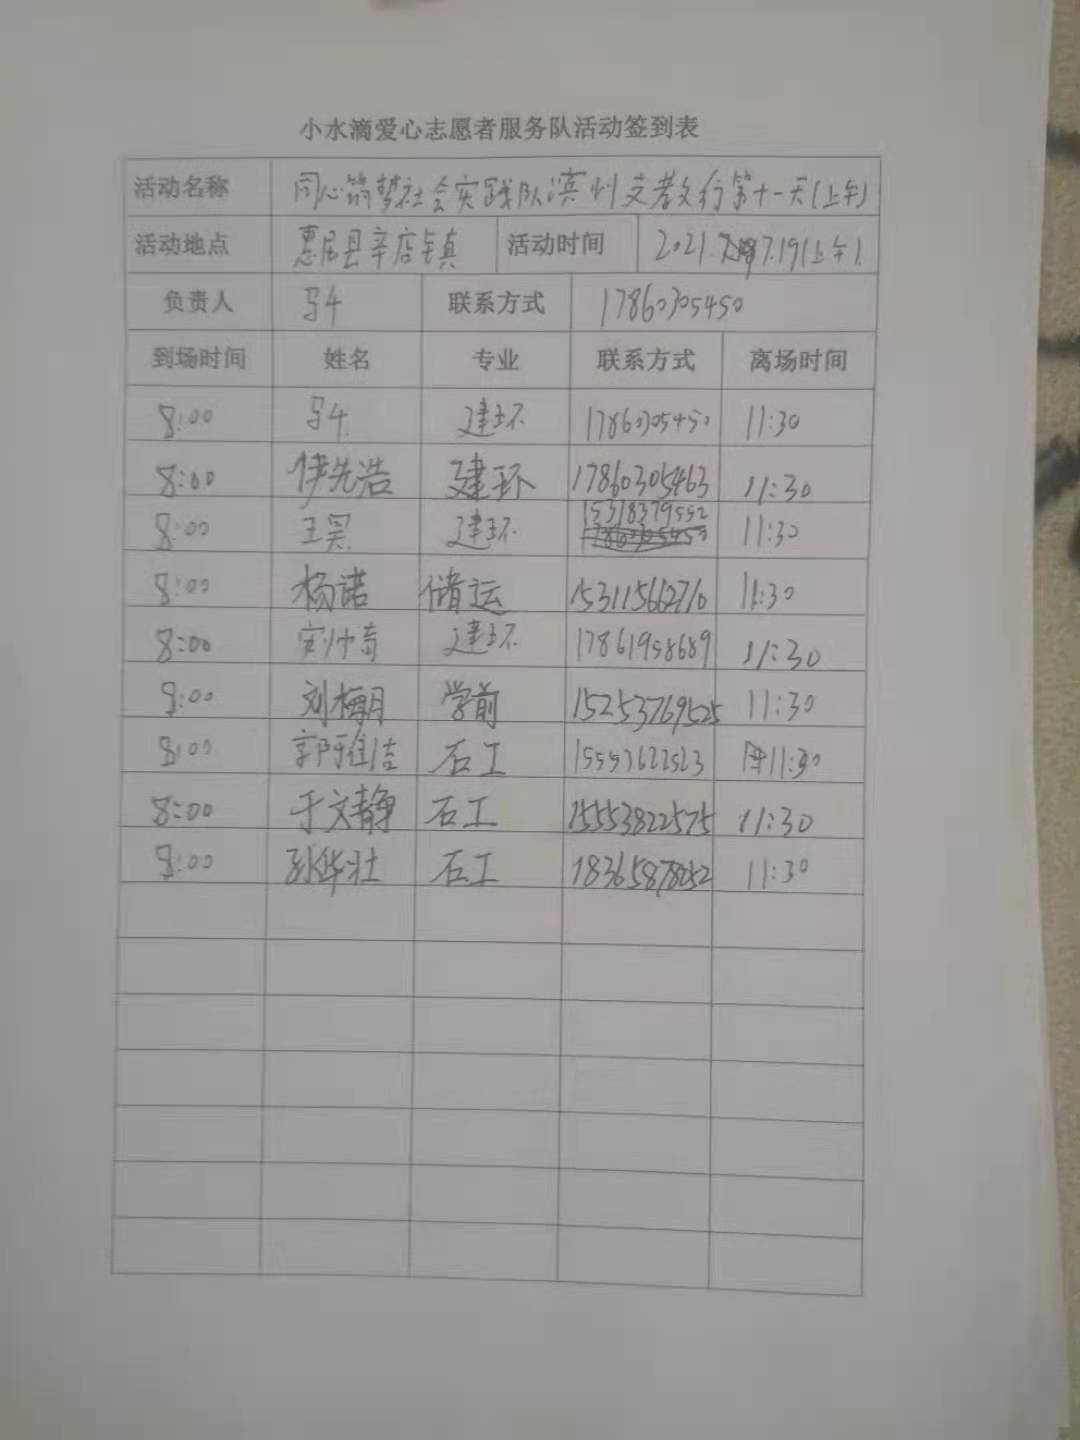 小水滴爱心志愿者服务队活动签到表
活动名称 同心筑梦社会实践队滨州支教文行第十一天(上午)
活动地点 惠民县辛店镇 活动时间 2021.7.19(上午)
负责人 联系方式 17860305450
到场时间 姓名 专业 联系方式 离场时间
8:00 建环 17860305450 11:30
8:00 伊先浩 建环 17860305463 11:30
8:00 王昊 建环 15318379552 11:30
8:00 杨诺 储运 15311566276 11:30
8:00 建环 17861958689 11:30
8:00 刘梅月 学前 15253769525 11:30
8:00 郭雅洁 石工 11:30
8:00 于文静 石工 15553822575 11:30
8:00 孙华壮 石工 11:30